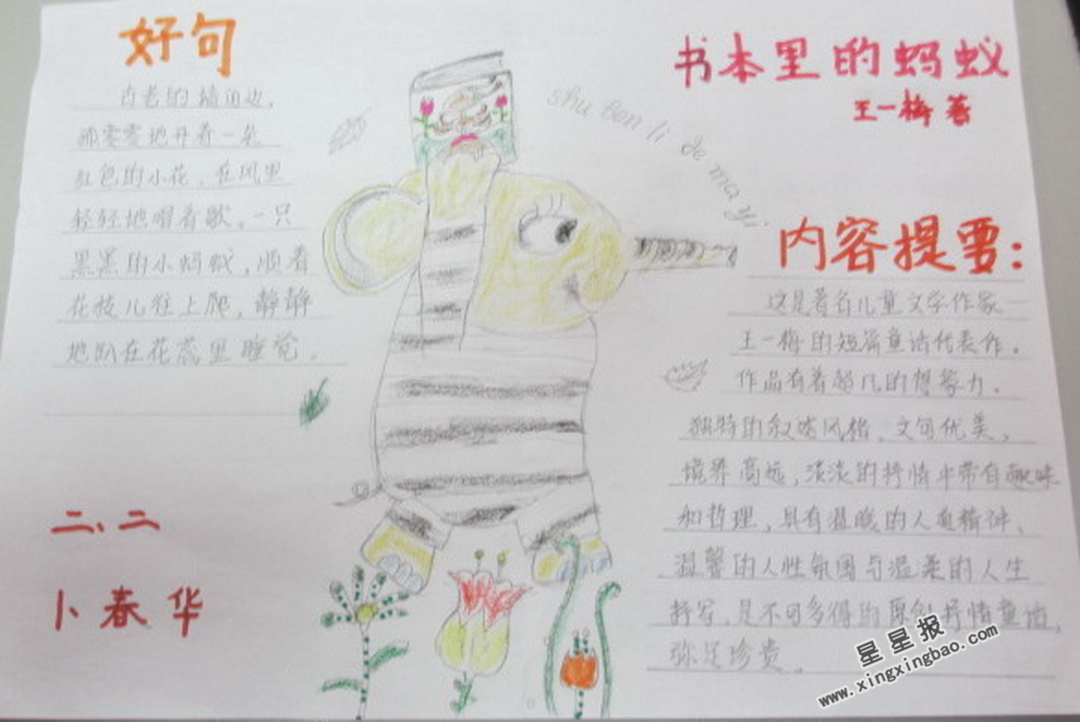 好句
古老的墙角边,
孤零零地开着一朵
红色的小花,在风里
轻轻地唱着歌。一只
黑黑的小蚂蚁,顺着
花枝儿往上爬,静静
地趴在花蕊里睡觉。
二、二
卜春华
shu Ben li de ma yi
书本里的蚂蚁
王一梅 著
内容提要:
这是著名儿童文学作家
王一梅的短篇童话代表作。
作品有着超凡的想象力,
独特的叙述风格,文句优美,
境界高远,淡淡的抒情中带有趣味
和哲理,具有温暖的人文精神、
温馨的人性氛围与温柔的人生
抒写,是不可多得的原创抒情童话,
弥足珍贵。
星星报
www.xingxingbao.com